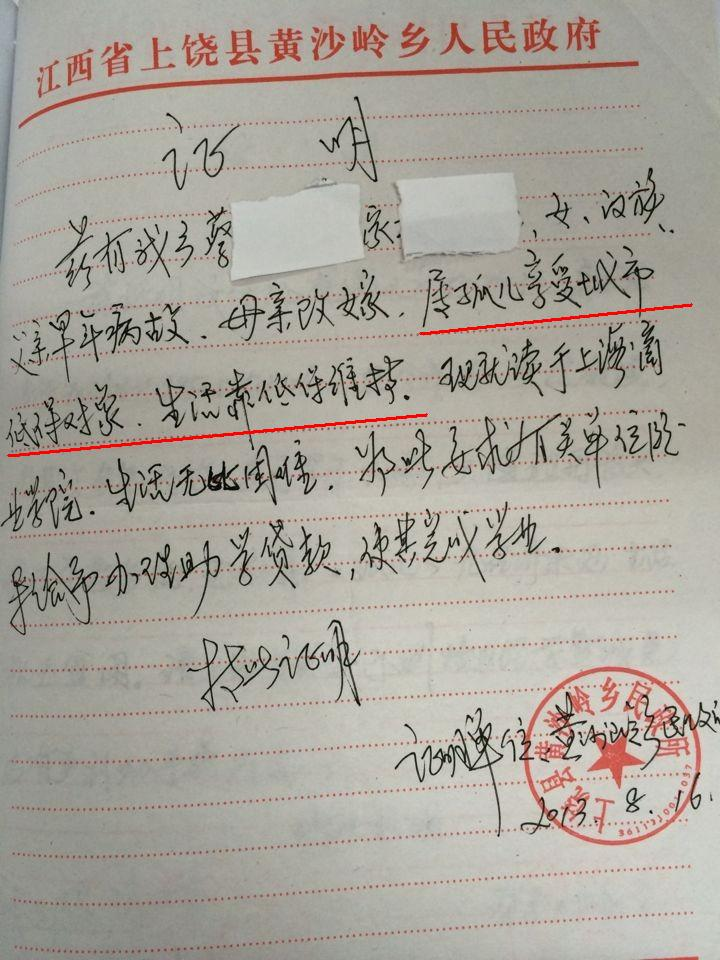 江西省上饶县黄沙岭乡人民政府
证 明
兹有我乡蔡 家 ,女、汉族、
父亲早年病故、母亲改嫁、属孤儿享受城市
低保对象、生活靠低保维持。现就读于上海商
业学院、生活无比困难、为此要求有关单位
给予办理助学贷款,使其完成学业。
特此证明
证明单位:黄沙岭乡民政所
2013.8.16
上饶县黄沙岭乡民政所